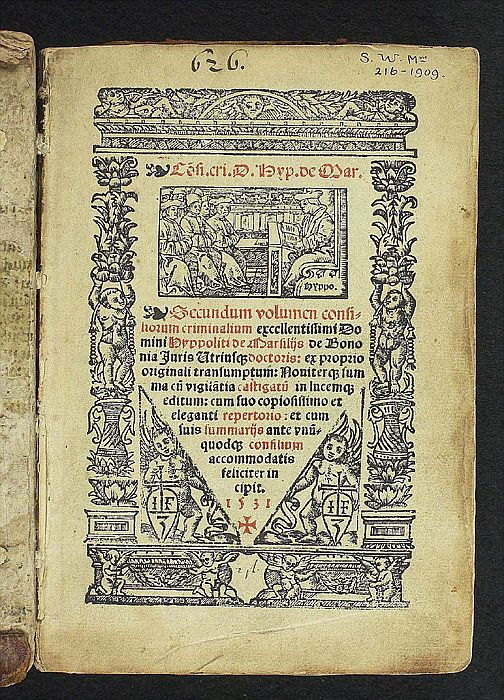 626.
S. W. Mr
216-1909.
Cōsi.cri.D.Hyp.de Mar.
hyppo.
Secundum volumen consi-
liorum criminalium excellentissimi Do
mini Hyppoliti de Marsilijs de Bono
nia Juris Utriusq; doctoris: ex proprio
originali transumptum: Noviterq; sum
ma cū vigilātia castigatū in lucemq;
editum: cum suo copiosissimo et
eleganti repertorio: et cum
suis summarijs ante vnū-
quodq; consilium
accommodatis
feliciter in
cipit.
1531
I F
I F